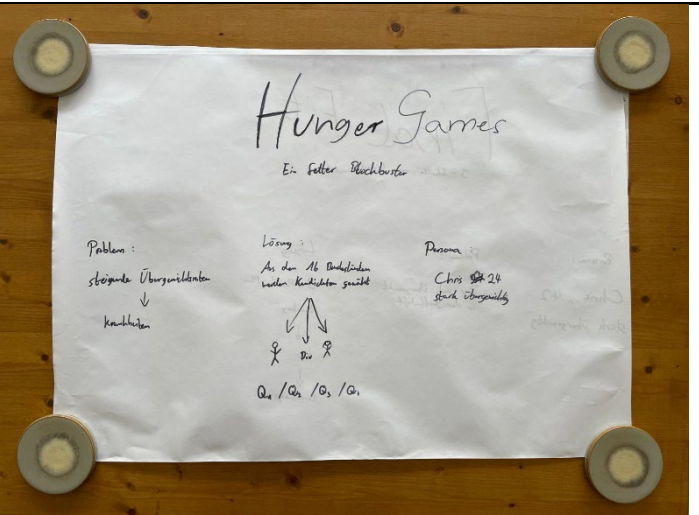 Hunger Games
Ein fetter Blockbuster
Problem :
steigende Übergewichtsraten
↓
Krankheiten
Lösung :
Aus den 16 Bundesländern
werden Kandidaten gewählt
Div
Q₁ / Q₂ / Q₃ / Q₁
Persona
Chris 24
stark übergewichtig